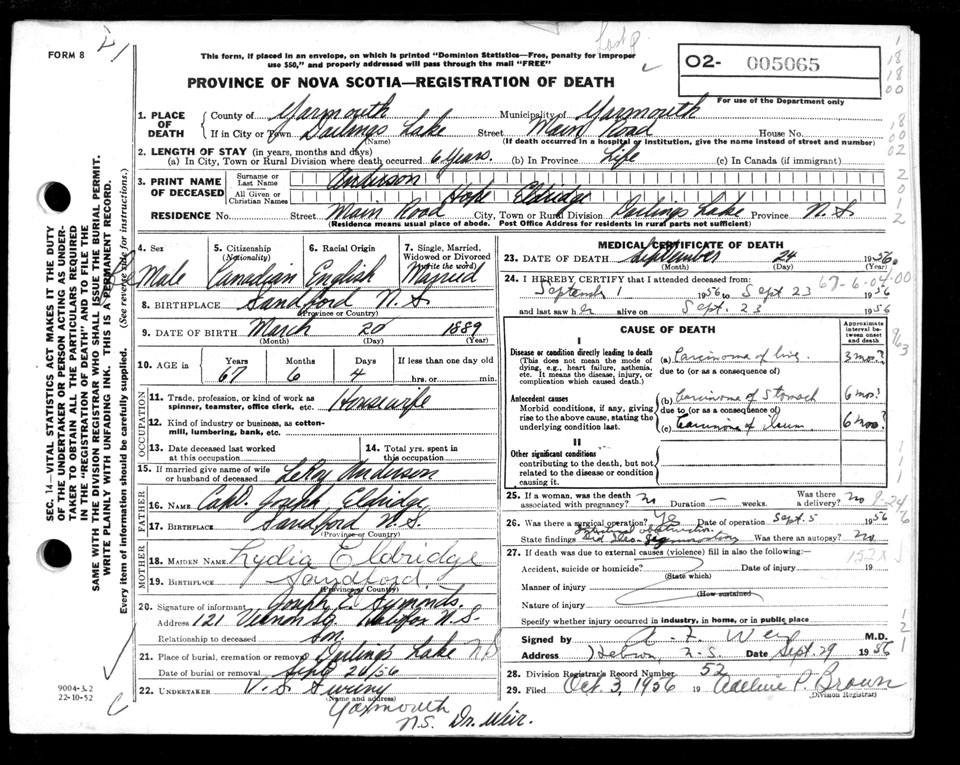 FORM 8
This form, if placed in an envelope, on which is printed "Dominion Statistics—Free, penalty for improper
use $50," and properly addressed will pass through the mail "FREE"
PROVINCE OF NOVA SCOTIA—REGISTRATION OF DEATH
O2- 005065
For use of the Department only
1. PLACE OF DEATH County of Yarmouth Municipality of Yarmouth
If in City or Town Darlings Lake Street Main Road House No.
(Name) (If death occurred in a hospital or institution, give the name instead of street and number)
2. LENGTH OF STAY (in years, months and days)
(a) In City, Town or Rural Division where death occurred 6 Years. (b) In Province Life (c) In Canada (if immigrant)
3. PRINT NAME OF DECEASED Surname or Last Name Anderson
All Given or Christian Names Hope Eldridge
RESIDENCE No. Street Main Road City, Town or Rural Division Darlings Lake Province N.S
(Residence means usual place of abode. Post Office Address for residents in rural parts not sufficient)
4. Sex 5. Citizenship (Nationality) 6. Racial Origin 7. Single, Married, Widowed or Divorced (Write the word)
Male Canadian English Married
8. BIRTHPLACE Sandford N.S
(Province or Country)
9. DATE OF BIRTH March 20 1889
(Month) (Day) (Year)
10. AGE in Years Months Days If less than one day old
67 6 4 hrs. or min.
OCCUPATION
11. Trade, profession, or kind of work as spinner, teamster, office clerk, etc. Housewife
12. Kind of industry or business, as cotton-mill, lumbering, bank, etc.
13. Date deceased last worked at this occupation 14. Total yrs. spent in this occupation
15. If married give name of wife or husband of deceased LeRoy Anderson
FATHER
16. NAME Capt. Joseph Eldridge
17. BIRTHPLACE Sandford N.S.
(Province or Country)
MOTHER
18. MAIDEN NAME Lydia Eldridge
19. BIRTHPLACE Sandford.
(Province or Country)
20. Signature of informant Joseph E. Symonds.
Address 121 Vernon Halifax N.S.
Relationship to deceased Son.
21. Place of burial, cremation or removal Darlings Lake N S
Date of burial or removal Sept 26/56
22. UNDERTAKER V. S. Sweeny
(Name and address)
Yarmouth
N.S. Dr. Weir.
MEDICAL CERTIFICATE OF DEATH
23. DATE OF DEATH September 24 1956
(Month) (Day) (Year)
24. I HEREBY CERTIFY that I attended deceased from:
September 1 1956 to Sept 23 1956
and last saw her alive on Sept. 23 1956
CAUSE OF DEATH
Approximate interval between onset and death
I
Disease or condition directly leading to death
(This does not mean the mode of dying, e.g., heart failure, asthenia, etc. It means the disease, injury, or complication which caused death.)
(a) Carcinoma of liver 3 mos.?
due to (or as a consequence of)
Antecedent causes
Morbid conditions, if any, giving rise to the above cause, stating the underlying condition last.
(b) Carcinoma of Stomach 6 mos?
due to (or as a consequence of)
(c) Carcinoma of ileum 6 mos?
II
Other significant conditions
contributing to the death, but not related to the disease or condition causing it.
25. If a woman, was the death associated with pregnancy? no Duration — weeks. Was there a delivery? no
26. Was there a surgical operation? Yes Date of operation Sept. 5 1956
State findings Intestinal obstruction. Was there an autopsy? no
27. If death was due to external causes (violence) fill in also the following:—
Accident, suicide or homicide? Date of injury 19
(State which)
Manner of injury
(How sustained)
Nature of injury
Specify whether injury occurred in industry, in home, or in public place
Signed by A. F. Weir M.D.
Address Hebron, N.S. Date Sept. 29 1956
28. Division Registrar's Record Number 52
29. Filed Oct 3, 1956 19 Adeline P. Brown
(Division Registrar)
SEC. 14—VITAL STATISTICS ACT MAKES IT THE DUTY
OF THE UNDERTAKER OR PERSON ACTING AS UNDER-
TAKER TO OBTAIN ALL THE PARTICULARS REQUIRED
IN THE "REGISTRATION OF DEATH" AND TO FILE THE
SAME WITH THE DIVISION REGISTRAR WHO SHALL ISSUE THE BURIAL PERMIT.
WRITE PLAINLY WITH UNFADING INK. THIS IS A PERMANENT RECORD.
Every item of information should be carefully supplied. (See reverse side for instructions.)
9004-3.2
22-10-52